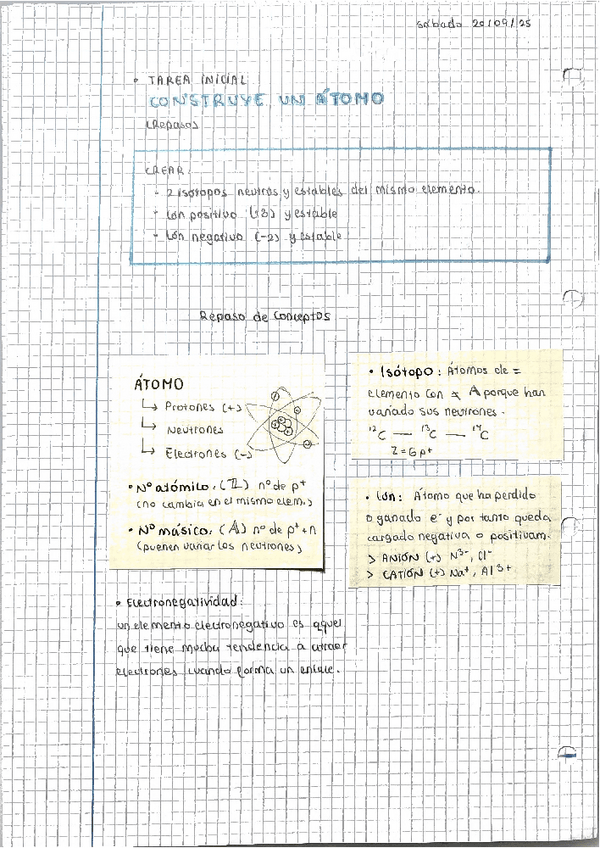 Sábado 20/09/25
• TAREA INICIAL
CONSTRUYE UN ÁTOMO
(Repaso)
CREAR:
- 2 isótopos neutros y estables del mismo elemento.
- Ión positivo (+3) y estable
- Ión negativo (-2) y estable
Repaso de Conceptos
ÁTOMO
↳ Protones (+)
↳ Neutrones
↳ Electrones (-)
• Nº atómico. (Z) nº de p⁺
(no cambia en el mismo elem.)
• Nº másico. (A) nº de p⁺+n
(pueden variar los neutrones)
• Isótopo: Átomos de =
elemento con ≠ A porque han
variado sus neutrones.
¹²C — ¹³C — ¹⁴C
Z=6p⁺
• Ión: Átomo que ha perdido
o ganado e⁻ y por tanto queda
cargado negativa o positivam.
> ANIÓN (+) N³⁻, Cl⁻
> CATIÓN (+) Na⁺, Al³⁺
• Electronegatividad:
un elemento electronegativo es aquel
que tiene mucha tendencia a atraer
electrones cuando forma un enlace.